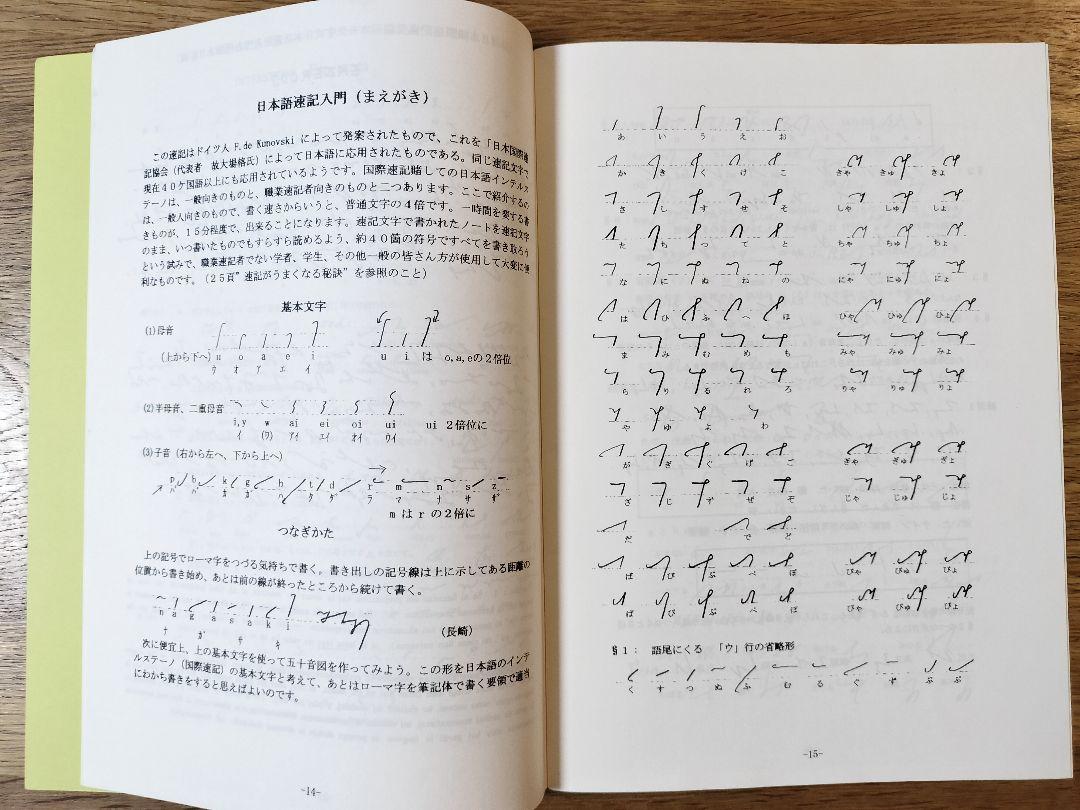 日本語速記入門（まえがき）
この速記はドイツ人 F.de Kunovski によって発案されたもので、これを「日本国際速
記協会（代表者 故大場格氏）によって日本語に応用されたものである。同じ速記文字で
現在４０ケ国語以上にも応用されているようです。国際速記暗しての日本語インテルス
テーノは、一般向きのものと、職業速記者向きのものと二つあります。ここで紹介するの
は、一般人向きのもので、書く速さからいうと、普通文字の４倍です。一時間を要する書
きものが、１５分程度で、出来ることになります。速記文字で書かれたノートを速記文字
のまま、いつ書いたものでもすらすら読めるよう、約４０箇の符号ですべてを書き取ろう
という試みで、職業速記者でない学者、学生、その他一般の皆さん方が使用して大変に便
利なものです。（２５頁”速記がうまくなる秘訣”を参照のこと）
基本文字
(1)母音
(上から下へ) u o a e i u i は o,a,eの２倍位
ウ オ ア エ イ
(2)半母音、二重母音
i,y w ai ei oi ui ui ２倍位に
イ (ワ) アイ エイ オイ ウイ
(3)子音（右から左へ、下から上へ）
p b k g h t d r m n s z
パ バ カ ガ ハ タ ダ ラ マ ナ サ ザ
m は r の２倍に
つなぎかた
上の記号でローマ字をつづる気持ちで書く。書き出しの記号線は上に示してある距離の
位置から書き始め、あとは前の線が終ったところから続けて書く。
n a g a s a k i
ナ ガ サ キ
（長崎）
次に便宜上、上の基本文字を使って五十音図を作ってみよう。この形を日本語のインテ
ルステーノ（国際速記）の基本文字と考えて、あとはローマ字を筆記体で書く要領で適当
にわかち書きをすると思えばよいのです。
-14-
あ い う え お
か き く け こ きゃ きゅ きょ
さ し す せ そ しゃ しゅ しょ
た ち つ て と ちゃ ちゅ ちょ
な に ぬ ね の にゃ にゅ にょ
は ひ ふ へ ほ ひゃ ひゅ ひょ
ま み む め も みゃ みゅ みょ
ら り る れ ろ りゃ りゅ りょ
や ゆ よ わ
が ぎ ぐ げ ご ぎゃ ぎゅ ぎょ
ざ じ ず ぜ ぞ じゃ じゅ じょ
だ で ど
ば び ぶ べ ぼ びゃ びゅ びょ
ぱ ぴ ぷ ぺ ぽ ぴゃ ぴゅ ぴょ
§１： 語尾にくる 「ウ」行の省略形
く す つ ぬ ふ む る ぐ ず ぶ ぷ
-15-